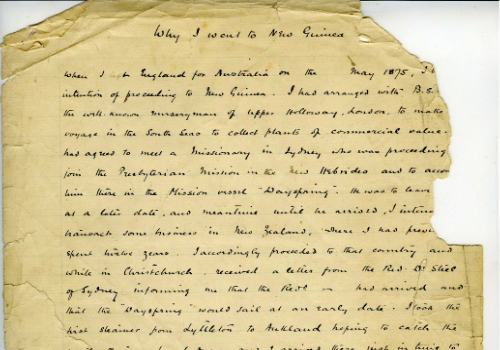 Why I went to New Guinea
When I England for Australia on the May 1875, I
intention of proceeding to New Guinea. I had arranged with B.S.
the well-known nurseryman of Upper Holloway, London, to make
voyage in the South Seas to collect plants of commercial value.
had agreed to meet a Missionary in Sydney who was proceeding
join the Presbyterian Mission in the New Hebrides and to accom
him there in the Mission vessel "Dayspring". He was to leave
at a later date, and meantime until he arrived, I inten
transact some business in New Zealand, where I had previ
spent twelve years. I accordingly proceeded to that country and
while in Christchurch received a letter from the Revd. Dr Steel
of Sydney informing me that the Revd. had arrived and
that the "Dayspring" would sail at an early date. I took the
first steamer from Lyttleton to Auckland hoping to catch the
and I arrived there just in time to